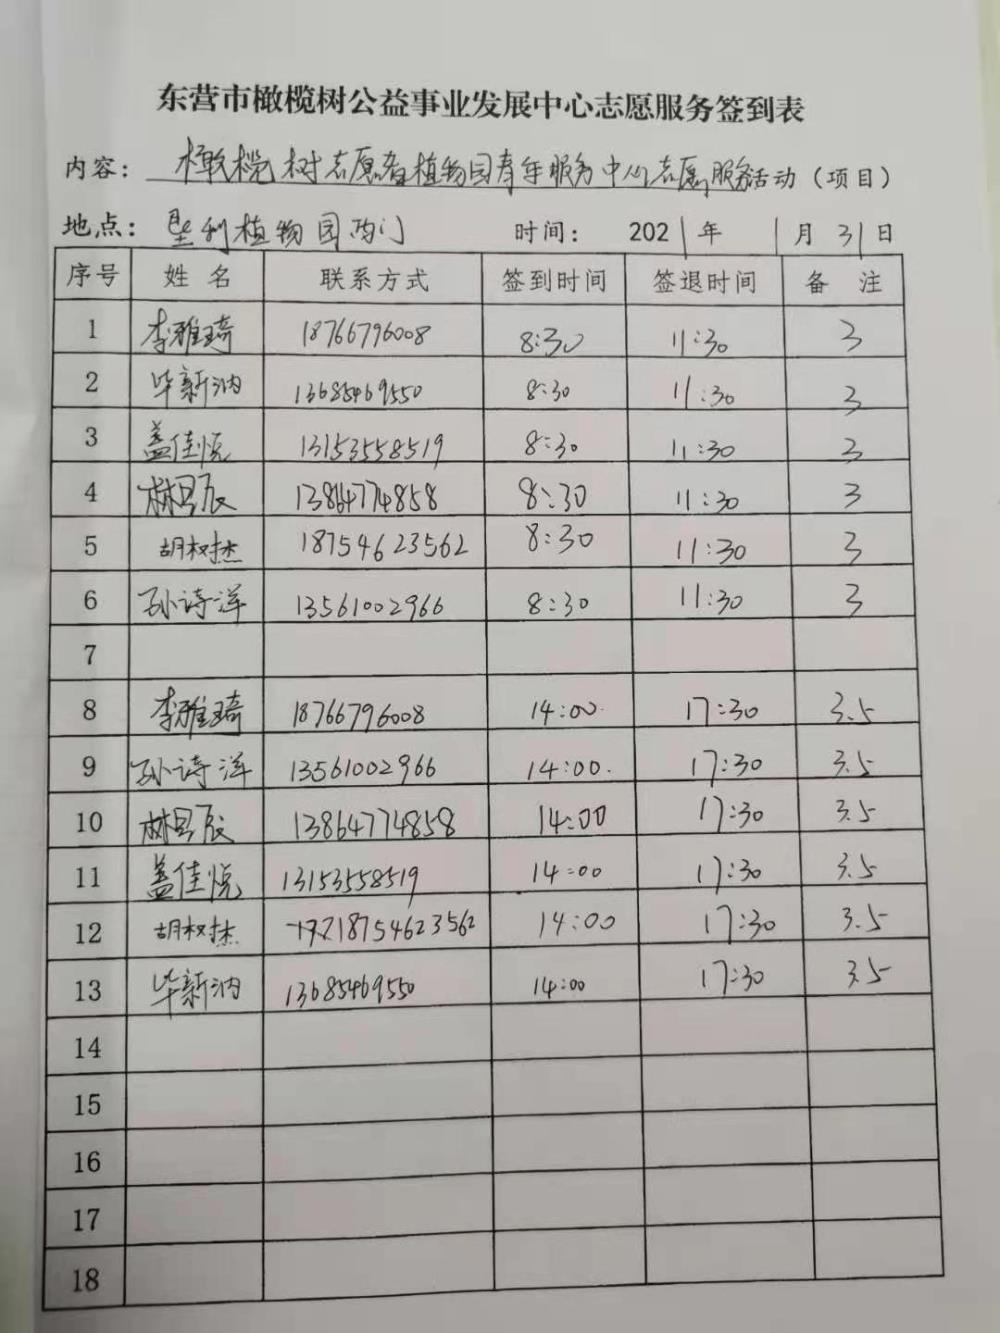 东营市橄榄树公益事业发展中心志愿服务签到表
内容：橄榄树志愿者植物园青年服务中心志愿服务活动（项目）
地点：垦利植物园西门 时间：2021年1月31日
序号 姓名 联系方式 签到时间 签退时间 备注
1 李雅琦 18766796008 8:30 11:30 3
2 毕新汭 13685469550 8:30 11:30 3
3 盖佳悦 13153558519 8:30 11:30 3
4 林昱辰 13864774858 8:30 11:30 3
5 胡权杰 18754623562 8:30 11:30 3
6 孙诗洋 13561002966 8:30 11:30 3
7
8 李雅琦 18766796008 14:00 17:30 3.5
9 孙诗洋 13561002966 14:00 17:30 3.5
10 林昱辰 13864774858 14:00 17:30 3.5
11 盖佳悦 13153558519 14:00 17:30 3.5
12 胡权杰 18754623562 14:00 17:30 3.5
13 毕新汭 13685469550 14:00 17:30 3.5
14
15
16
17
18